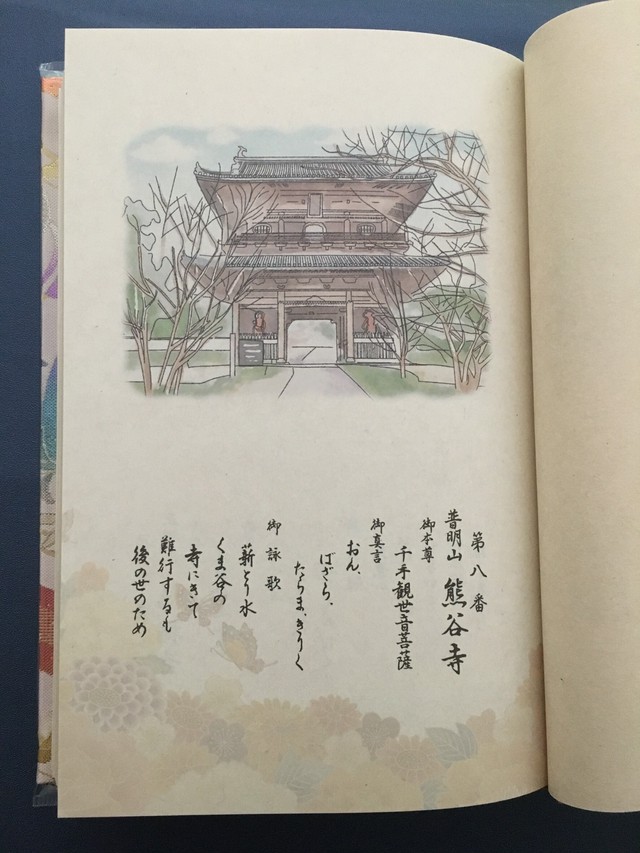 第八番
普明山 熊谷寺
御本尊
千手観世音菩薩
御真言
おん、
ばざら、
たらま、きりく
御詠歌
薪とり水
くま谷の
寺にきて
難行するも
後の世のため